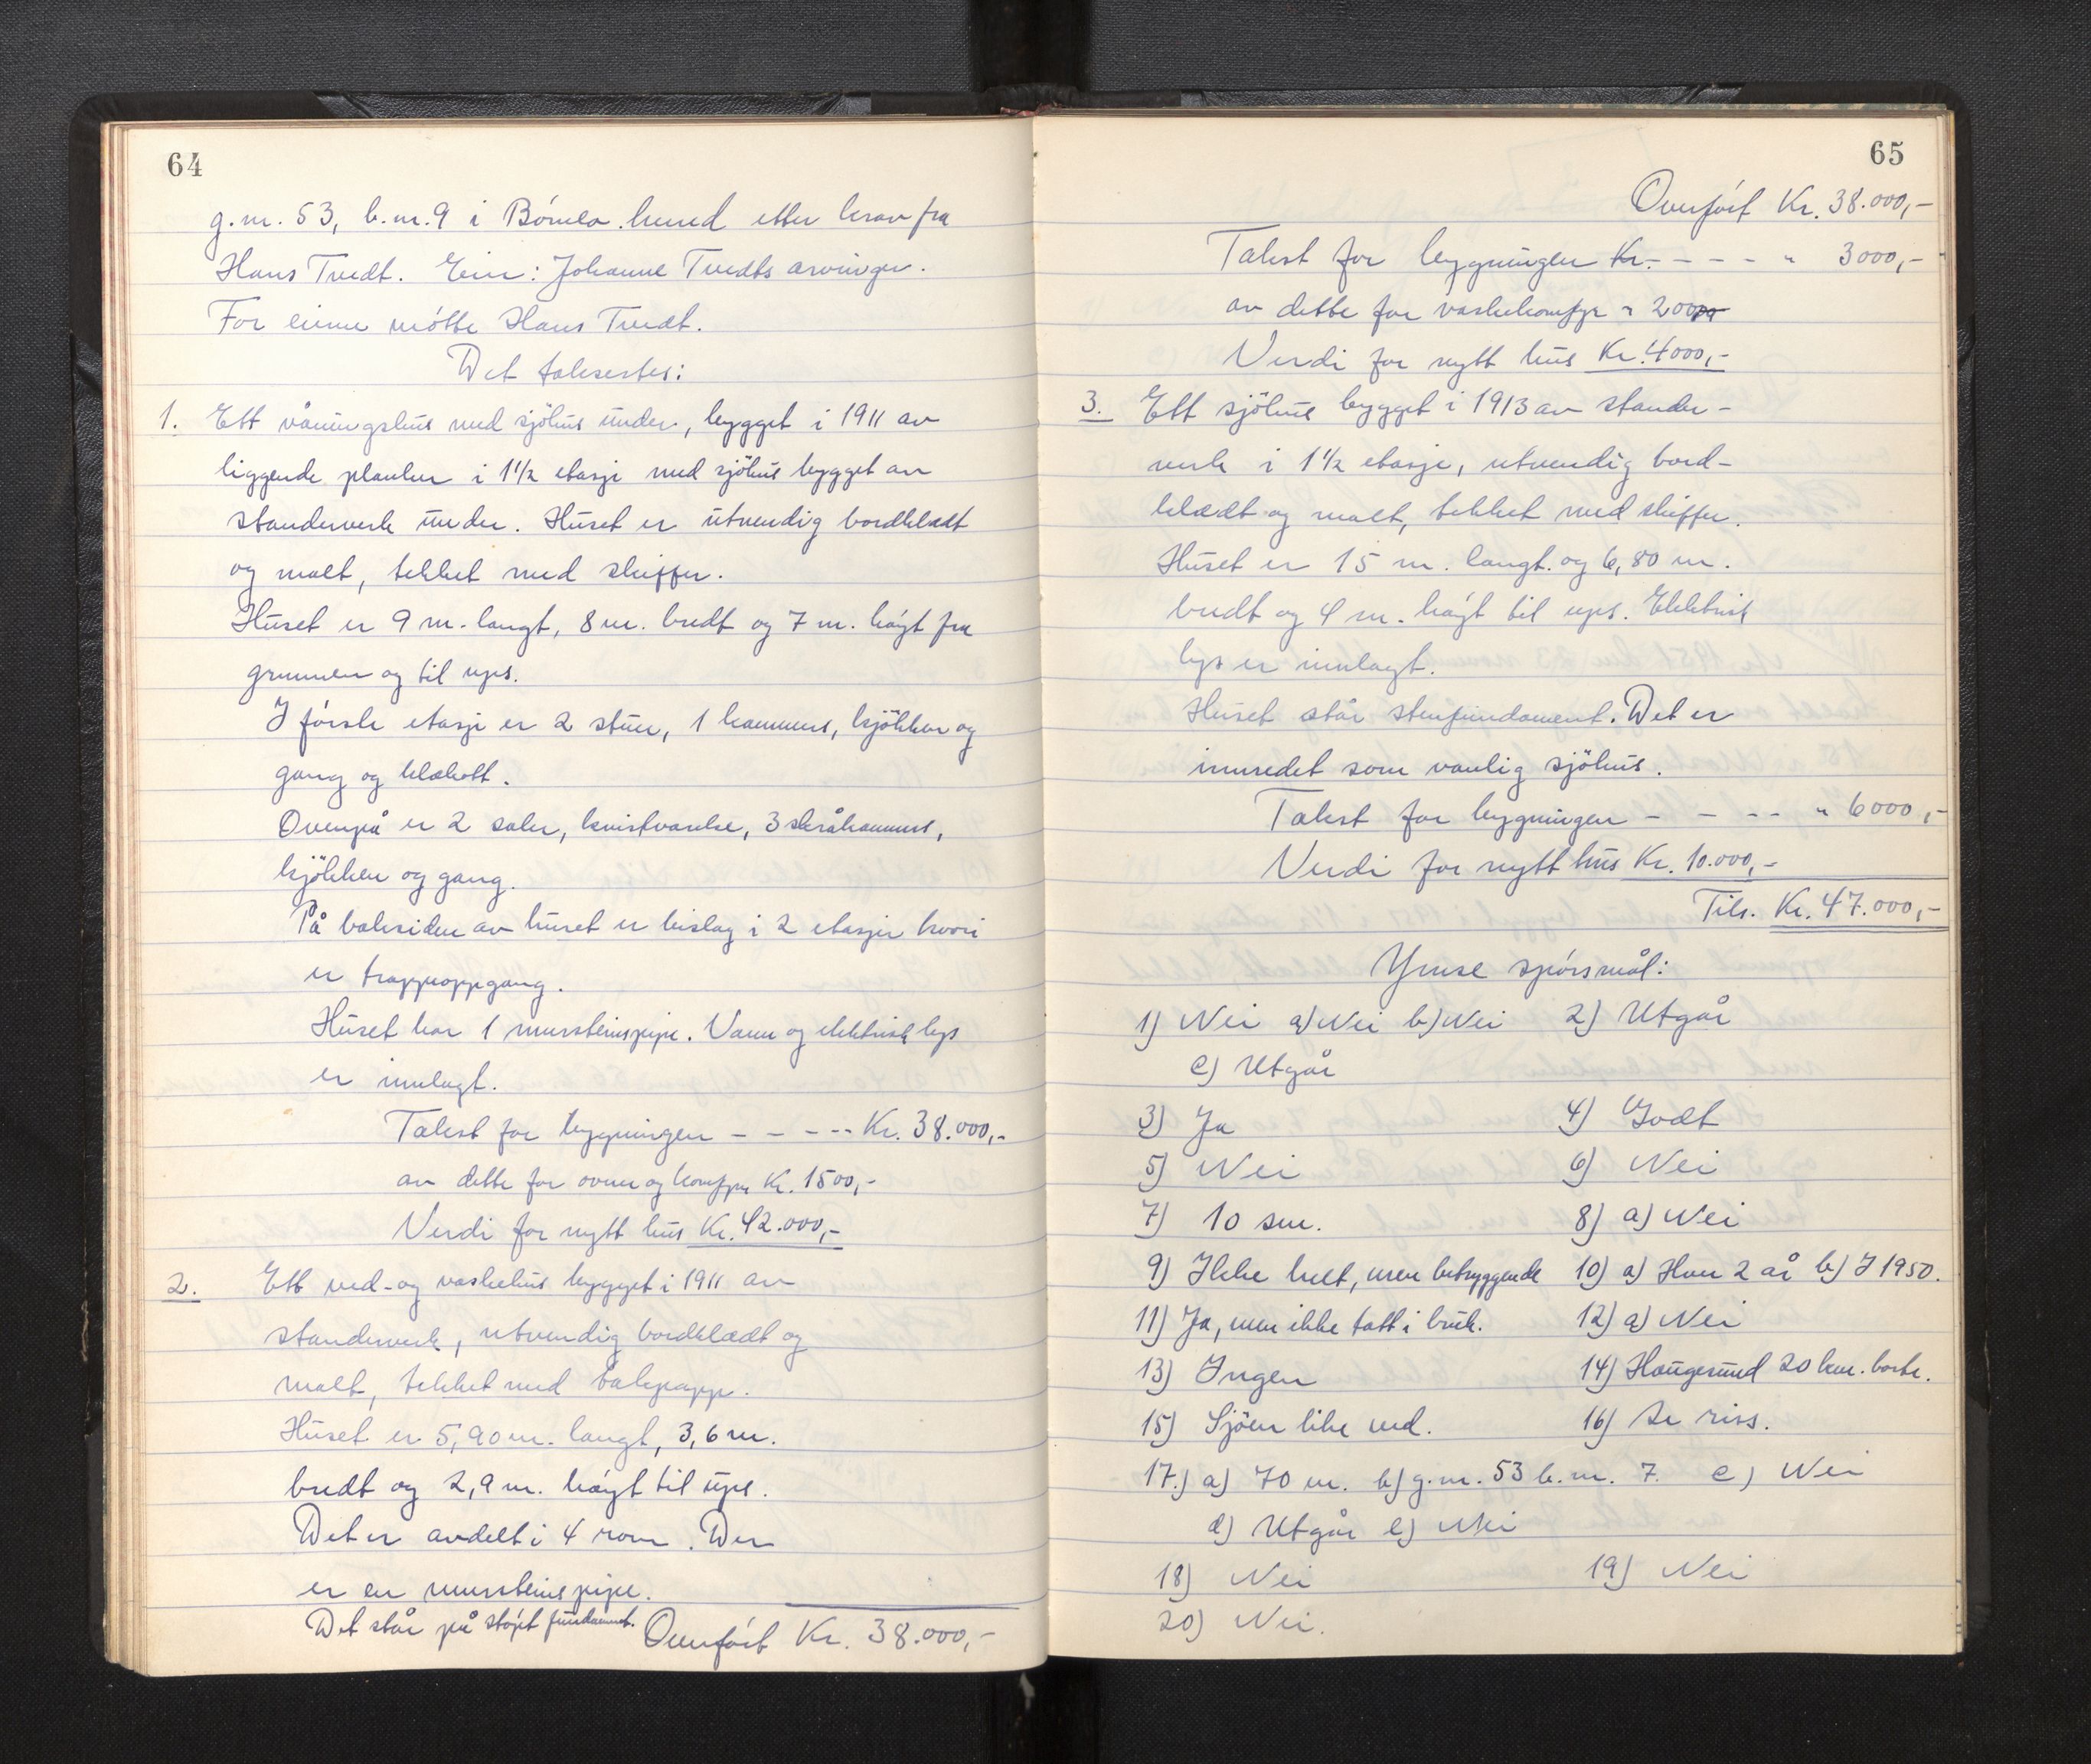 64
g.nr. 53, b.nr. 9 i Bömlo herred etter krav fra
Hans Tvedt. Eier: Johanne Tvedts arvinger.
For eierne møtte Hans Tvedt.
Det takseres:
1. Ett våningshus med sjöhus under, bygget i 1911 av
liggende planker i 1 1/2 etasje med sjöhus bygget av
standerverk under. Huset er utvendig bordklædt
og malt, tekket med skiffer.
Huset er 9 m. langt, 8 m. bredt og 7 m. høgt fra
grunnen og til ups.
I første etasje er 2 stuer, 1 kammers, kjökken og
gang og klækott.
Ovenpå er 2 saler, kvistværelse, 3 skråkammers,
kjökken og gang.
På baksiden av huset er bislag i 2 etasjer hvori
er trappeoppgang.
Huset har 1 murstenspipe. Vann og elektrisk lys
er innlagt.
Takst for bygningen - - - - - Kr. 38.000,-
av dette for ovner og komfyr Kr. 1500,-
Verdi for nytt hus Kr. 42.000,-
2. Ett ved- og vaskehus bygget i 1911 av
standerverk, utvendig bordklædt og
malt, tekket med takpapp.
Huset er 5,90 m. langt, 3,6 m.
bredt og 2,9 m. høgt til ups.
Det er avdelt i 4 rom. Der
er en murstenspipe.
Det står på støpt fundament.
Overført Kr. 38.000,-
65
Overført Kr. 38.000,-
Takst for bygningen Kr. - - - - " 3000,-
av dette for vaskekomfyr " 200
Verdi for nytt hus Kr. 4000,-
3. Ett sjöhus bygget i 1913 av stander-
verk i 1 1/2 etasje, utvendig bord-
klædt og malt, tekket med skiffer.
Huset er 15 m. langt og 6,80 m.
bredt og 4 m. høgt til ups. Elektrisk
lys er innlagt.
Huset står stenfundament. Det er
innredet som vanlig sjöhus.
Takst for bygningen - - - - " 6000,-
Verdi for nytt hus Kr. 10.000,-
Tils. Kr. 47.000,-
Ymse spørsmål:
1) Nei a) Nei b) Nei 2) Utgår
c) Utgår
3) Ja 4) Godt
5) Nei 6) Nei
7) 10 sm. 8) a) Nei
9) Ikke helt, men betryggende 10) a) Hver 2 år b) I 1950.
11) Ja, men ikke tatt i bruk. 12) a) Nei
13) Ingen 14) Haugesund 20 km. borte.
15) Sjöen like ved. 16) Se riss.
17.) a) 70 m. b) g.nr. 53 b.nr. 7. c) Nei
d) Utgår e) Nei
18) Nei 19) Nei
20) Nei.